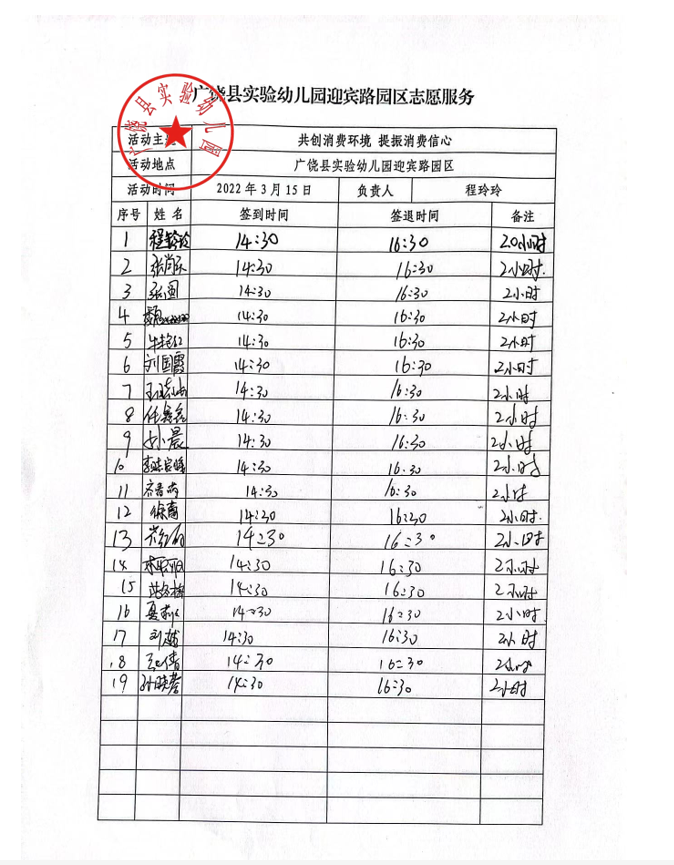 广饶县实验幼儿园迎宾路园区志愿服务
广饶县实验幼儿园
活动主题 共创消费环境 提振消费信心
活动地点 广饶县实验幼儿园迎宾路园区
活动时间 2022年3月15日 负责人 程玲玲
序号 姓名 签到时间 签退时间 备注
1 程玲玲 14:30 16:30 20小时
2 14:30 16:30 2小时.
3 14:30 16:30 2小时
4 14:30 16:30 2小时
5 14:30 16:30 2小时
6 刘国霞 14:30 16:30 2小时
7 14:30 16:30 2小时
8 14:30 16:30 2小时
9 14:30 16:30 2小时
10 14:30 16.30 2小时
11 14:30 16:30 2小时
12 14:30 16:30 2小时.
13 14:30 16:30 2小时
14 14:30 16:30 2小时
15 14:30 16:30 2小时
16 14:30 16:30 2小时
17 14:30 16:30 2小时
18 14:30 16:30 2小时
19 14:30 16:30 2小时